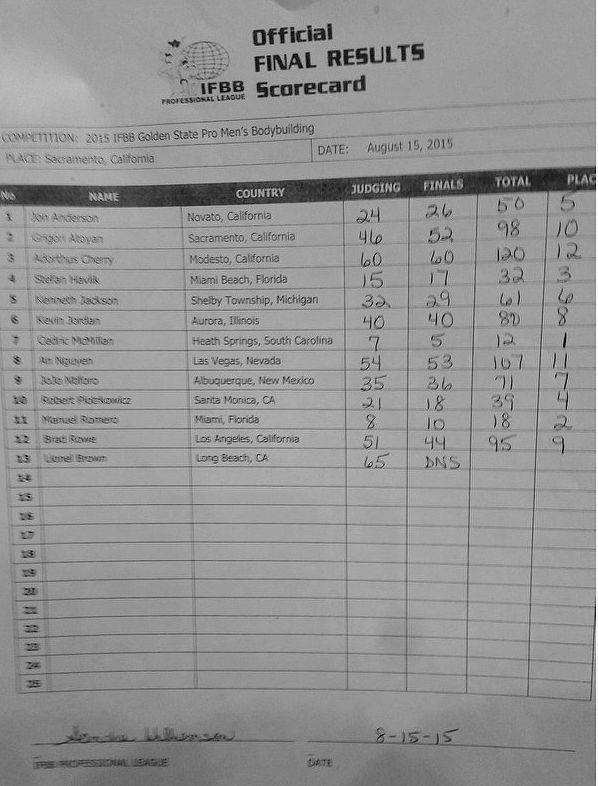 Official
FINAL RESULTS
IFBB Scorecard
PROFESSIONAL LEAGUE
COMPETITION: 2015 IFBB Golden State Pro Men's Bodybuilding
PLACE: Sacramento, California DATE: August 15, 2015
No NAME COUNTRY JUDGING FINALS TOTAL PLAC
1 Jon Anderson Novato, California 24 26 50 5
2 Grigori Atoyan Sacramento, California 46 52 98 10
3 Adorthus Cherry Modesto, California 60 60 120 12
4 Stefan Havlik Miami Beach, Florida 15 17 32 3
5 Kenneth Jackson Shelby Township, Michigan 32 29 61 6
6 Kevin Jordan Aurora, Illinois 40 40 80 8
7 Cedric McMillan Heath Springs, South Carolina 7 5 12 1
8 An Nguyen Las Vegas, Nevada 54 53 107 11
9 JoJo Ntiforo Albuquerque, New Mexico 35 36 71 7
10 Robert Piotrkowicz Santa Monica, CA 21 18 39 4
11 Manuel Romero Miami, Florida 8 10 18 2
12 Brad Rowe Los Angeles, California 51 44 95 9
13 Lionel Brown Long Beach, CA 65 DNS
14
15
16
17
18
19
20
21
22
23
24
25
8-15-15
IFBB PROFESSIONAL LEAGUE DATE